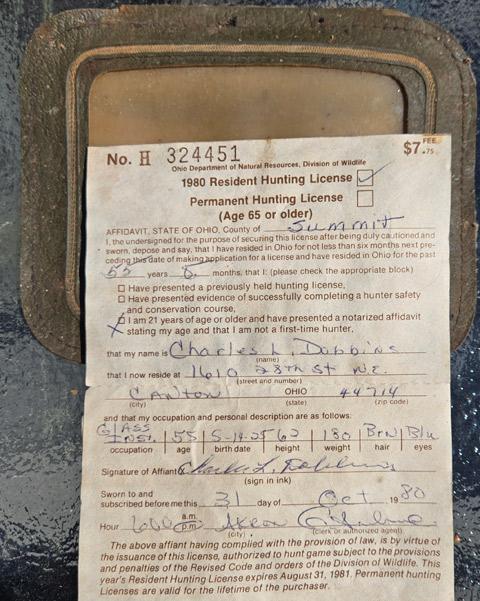 No. H 324451
FEE
$7.75
Ohio Department of Natural Resources, Division of Wildlife
1980 Resident Hunting License ✓
Permanent Hunting License
(Age 65 or older)
AFFIDAVIT, STATE OF OHIO, County of Summit
I, the undersigned for the purpose of securing this license after being duly cautioned and
sworn, depose and say, that I have resided in Ohio for not less than six months next pre-
ceding this date of making application for a license and have resided in Ohio for the past
55 years months, that I: (please check the appropriate block)
☐ Have presented a previously held hunting license,
☐ Have presented evidence of successfully completing a hunter safety
and conservation course,
☐ I am 21 years of age or older and have presented a notarized affidavit
stating my age and that I am not a first-time hunter,
that my name is Charles L. Dobbins
(name)
that I now reside at 1610 28th St N.E.
(street and number)
Canton OHIO 44714
(city) (state) (zip code)
and that my occupation and personal description are as follows:
GLASS
INST. 55 5-14-25 62 180 Brn Blu
occupation age birth date height weight hair eyes
Signature of Affiant Charles L. Dobbins
(sign in ink)
Sworn to and
subscribed before me this 31 day of Oct 1980
Hour a.m. p.m. Akron
(city) (clerk or authorized agent)
The above affiant having complied with the provision of law, is by virtue of
the issuance of this license, authorized to hunt game subject to the provisions
and penalties of the Revised Code and orders of the Division of Wildlife. This
year's Resident Hunting License expires August 31, 1981. Permanent hunting
Licenses are valid for the lifetime of the purchaser.